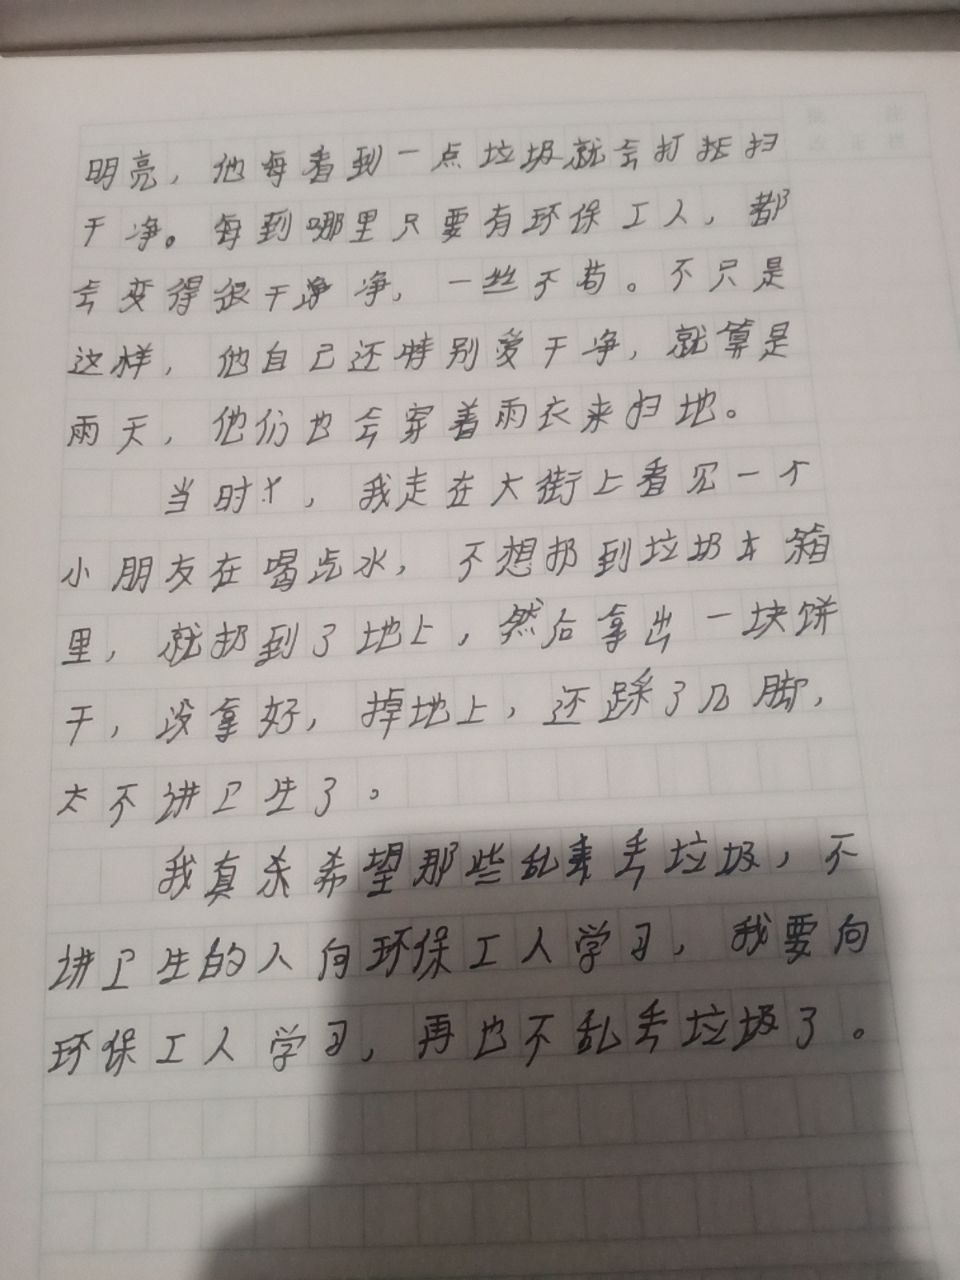 明亮，他每看到一点垃圾就会打扫
干净。每到哪里只要有环保工人，都
会变得很干净净，一丝不苟。不只是
这样，他自己还特别爱干净，就算是
雨天，他们也会穿着雨衣来扫地。
当时，我走在大街上看见一个
小朋友在喝水，不想扔到垃圾箱
里，就扔到了地上，然后拿出一块饼
干，没拿好，掉地上，还踩了几脚，
太不讲卫生了。
我真希望那些乱丢垃圾，不
讲卫生的人向环保工人学习，我要向
环保工人学习，再也不乱丢垃圾了。